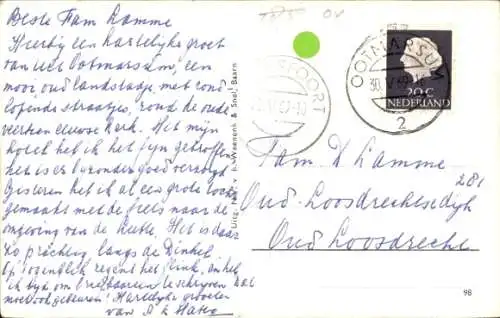 Beste Fam Lamme
Hierbij een hartelijke groet
van uit Ootmarsum, een
mooi oud landstadje, met rond
lopende straatjes, rond de oude
eeuwse kerk. Met mijn
hotel heb ik het fijn getroffen
het is er bijzonder goed verzorgd
Gisteren heb ik al een grote tocht
gemaakt met de fiets naar de
omgeving van de Lutte. Het is daar
zo prachtig langs de Dinkel
Op 't ogenblik regent het flink,
ik bijd om briefkaarten te schrijven dat
moet ook gebeuren! Hartelijke groeten
van
Uitg. v h Weenenk & Snel, Baarn
OOTMARSUM
30 V 69
2
20 C
NEDERLAND
Fam. K Lamme
281
Oud-Loosdrechtsedijk
Oud Loosdrecht
98